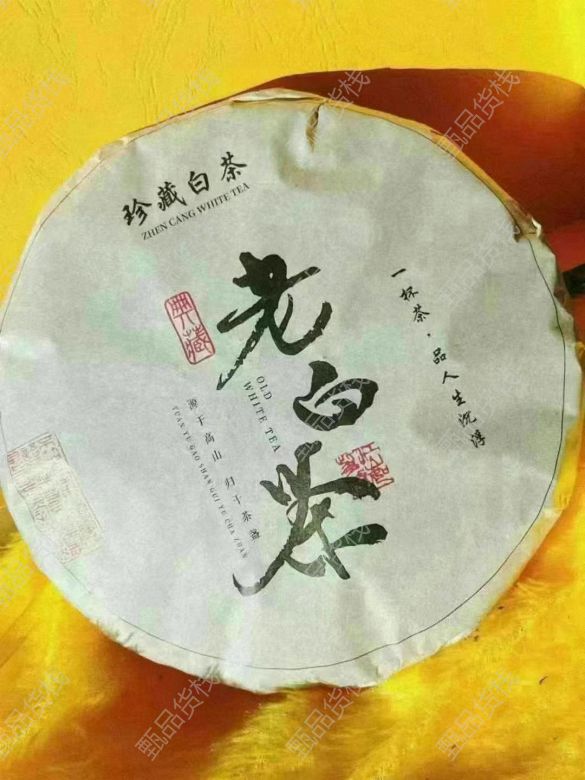 珍藏白茶
ZHEN CANG WHITE TEA
老白茶
OLD
WHITE TEA
典藏
一杯茶·品人生沉浮
源于高山 归于茶盏
YUAN YU GAO SHAN GUI YU CHA ZHAN
甄品货栈